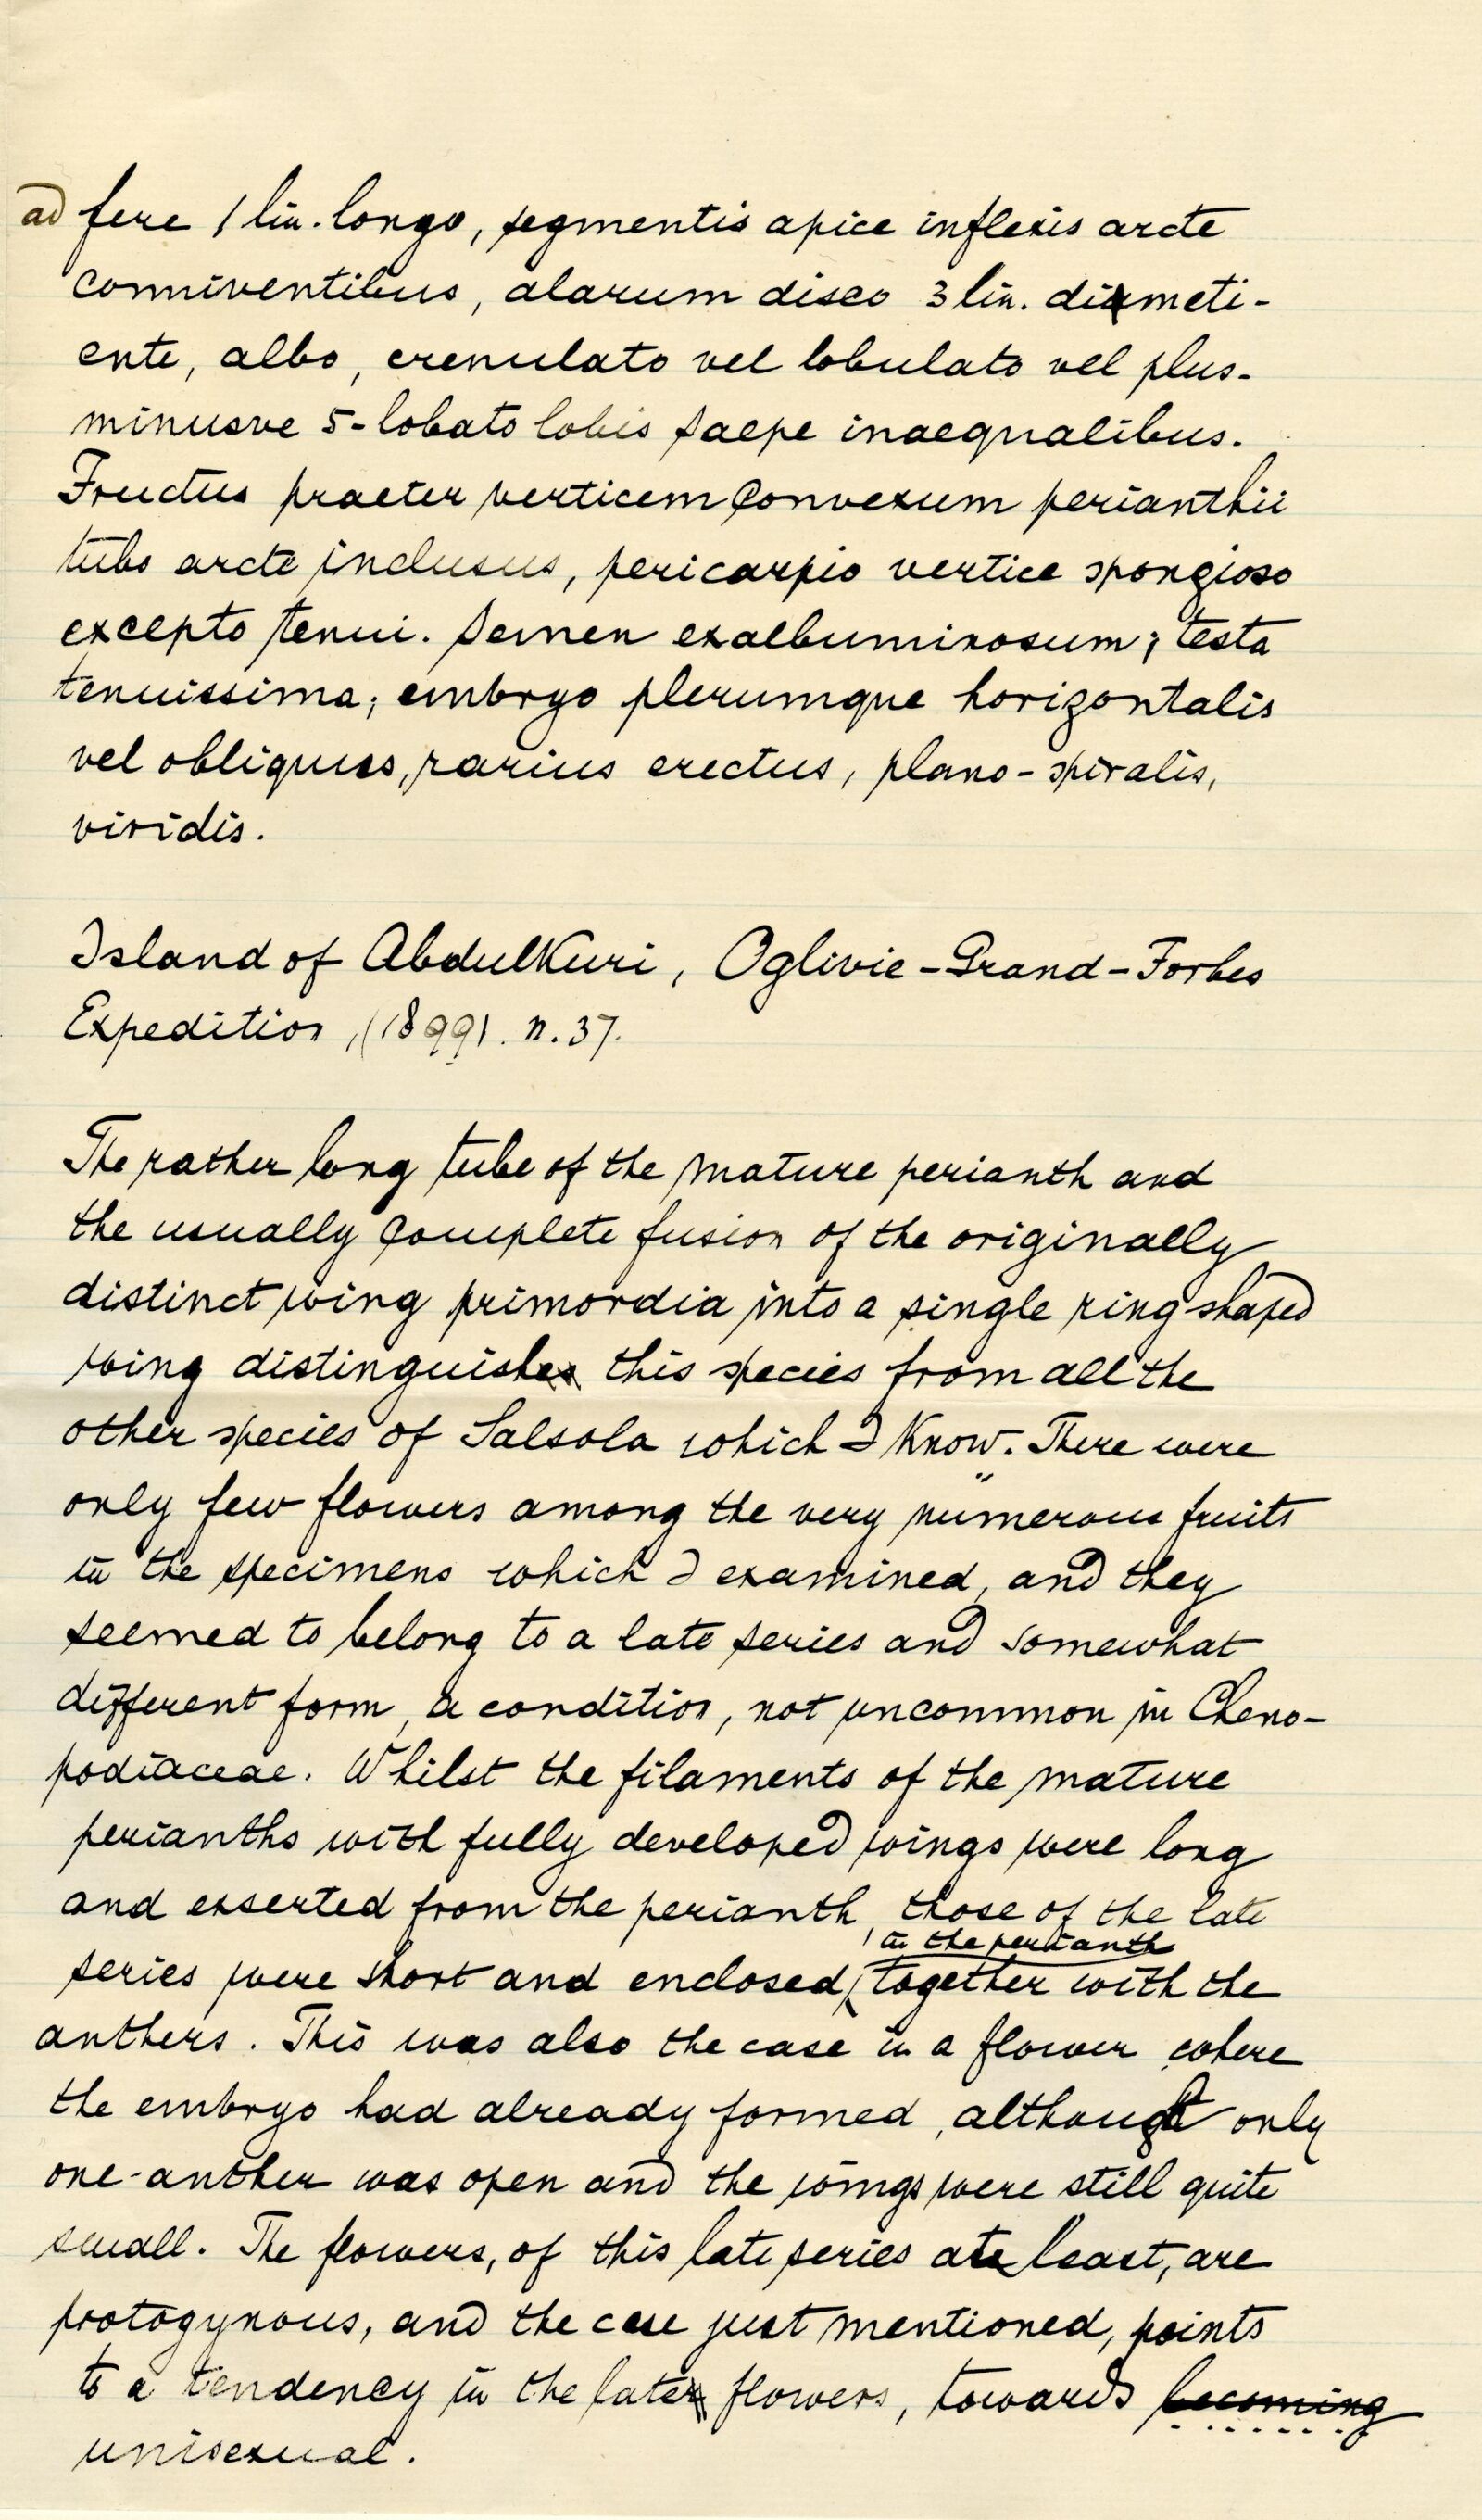 ad fere 1 lin. longo, segmentis apice inflexis arcte
conniventibus, alarum disco 3 lin. diameti-
ente, albo, crenulato vel lobulato vel plus-
minusve 5-lobato lobis saepe inaequalibus.
Fructus praeter verticem convexum perianthii
tubo arcte inclusus, pericarpio vertice spongioso
excepto tenui. Semen exalbuminosum; testa
tenuissima; embryo plerumque horizontalis
vel obliquus, rarius erectus, plano-spiralis,
viridis.
Island of AbdulKuri, Oglivie-Grand-Forbes
Expedition, (1899). n. 37.
The rather long tube of the mature perianth and
the usually complete fusion of the originally
distinct wing primordia into a single ring shaped
wing distinguishes this species from all the
other species of Salsola which I Know. There were
only few flowers among the very numerous fruits
in the specimens which I examined, and they
seemed to belong to a late series and somewhat
different form, a condition, not uncommon in Cheno-
podiaceae. Whilst the filaments of the mature
perianths with fully developed wings were long
and exserted from the perianth, those of the late
in the perianth
series were short and enclosed, together with the
anthers. This was also the case in a flower where
the embryo had already formed, although only
one-anther was open and the wings were still quite
small. The flowers, of this late series at least, are
protogynous, and the case just mentioned, points
to a tendency in the later flowers, towards becoming
unisexual.